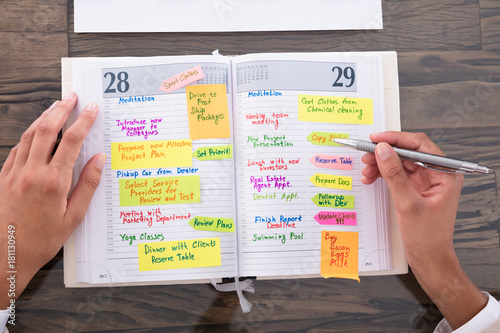 28
Sport Clothes
Meditation
Drive to
Post
Ship
Packages
Introduce new
Manager to
Colleagues
Prepare new Milestone
Project Plan
Set Priorities
Pickup Car from Dealer
Select Service
Providers for
Review and Test
Meeting with
Marketing Department
Review Plans
Yoga Classes
Dinner with Clients
Reserve Table
29
Meditation
Got Clothes from
Chemical cleaning
Weekly team
meeting
New Project
Presentation
Reserve Table
Lunch with new
investors
Real Estate
Agent Appt.
Prepare Docs
Dentist Appt.
Followup
with Dev
Finish Report
Deadline
Update
Charts
Swimming Pool
Buy
Bacon
Eggs
Milk
Adobe Stock | #118130949